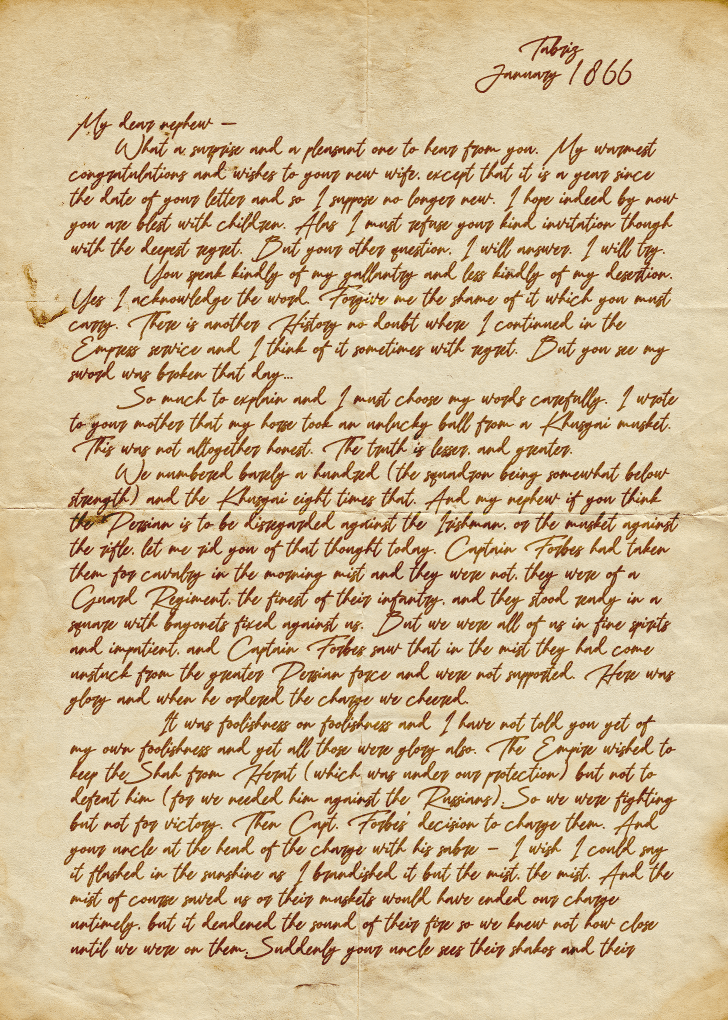 Tabriz
January 1866
My dear nephew –
What a surprise and a pleasant one to hear from you. My warmest
congratulations and wishes to your new wife, except that it is a year since
the date of your letter and so I suppose no longer new. I hope indeed by now
you are blest with children. Alas I must refuse your kind invitation though
with the deepest regret. But your other question, I will answer. I will try.
You speak kindly of my gallantry and less kindly of my desertion.
Yes I acknowledge the word. Forgive me the shame of it which you must
carry. There is another History no doubt where I continued in the
Empress service and I think of it sometimes with regret. But you see my
sword was broken that day...
So much to explain and I must choose my words carefully. I wrote
to your mother that my horse took an unlucky ball from a Khusgai musket.
This was not altogether honest. The truth is lesser, and greater.
We numbered barely a hundred (the squadron being somewhat below
strength) and the Khusgai eight times that. And my nephew if you think
the Persian is to be disregarded against the Irishman, or the musket against
the rifle, let me rid you of that thought today. Captain Forbes had taken
them for cavalry in the morning mist and they were not, they were of a
Guard Regiment, the finest of their infantry, and they stood ready in a
square with bayonets fixed against us. But we were all of us in fine spirits
and impatient, and Captain Forbes saw that in the mist they had come
unstuck from the greater Persian force and were not supported. Here was
glory and when he ordered the charge we cheered.
It was foolishness on foolishness and I have not told you yet of
my own foolishness and yet all those were glory also. The Empire wished to
keep the Shah from Herat (which was under our protection) but not to
defeat him (for we needed him against the Russians). So we were fighting
but not for victory. Then Capt. Forbes' decision to charge them. And
your uncle at the head of the charge with his sabre – I wish I could say
it flashed in the sunshine as I brandished it but the mist, the mist. And the
mist of course saved us or their muskets would have ended our charge
untimely, but it deadened the sound of their fire so we knew not how close
until we were on them. Suddenly your uncle sees their shakos and their